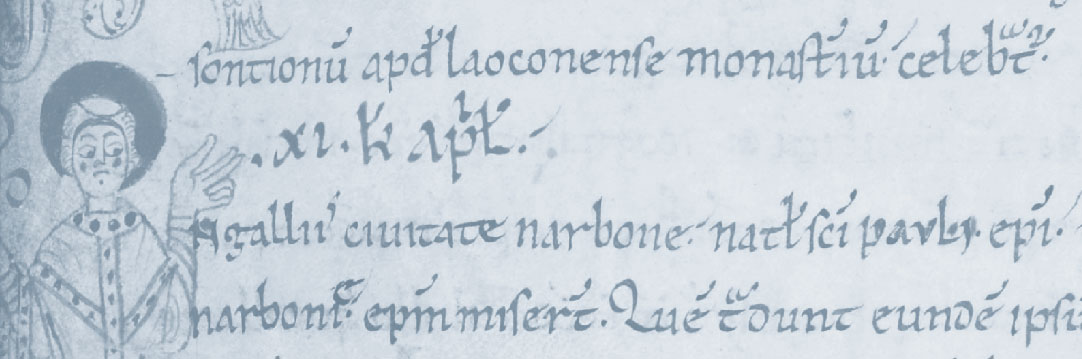 sontionū apđ laoconense monast̄iū celebr̄t̄
· xi · k̄ apr̄ł ·
A galliī ciuitate narbone · nat̄ł sc̄i pauli ep̄i ·
narboni ep̄m miser̄t · Quē t̄dunt eundē ipsi